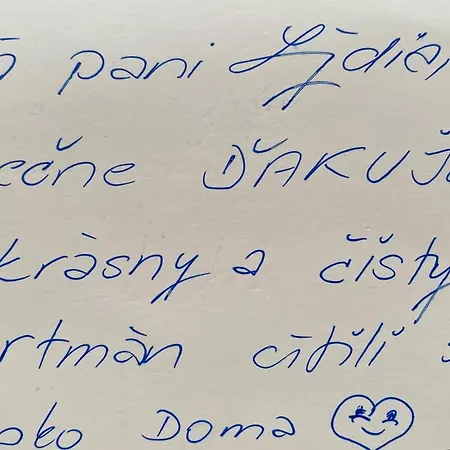 pani Lýdia
ečne ĎAKUJ
krásny a čistý
rtmán cítili
oko Doma